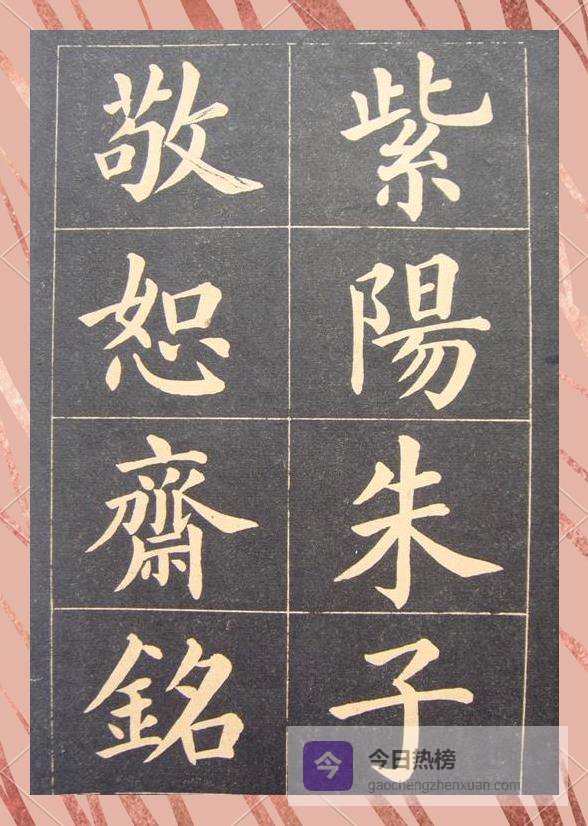 紫陽朱子
敬恕齋銘
今日热榜
gaochengzhenxuan.com